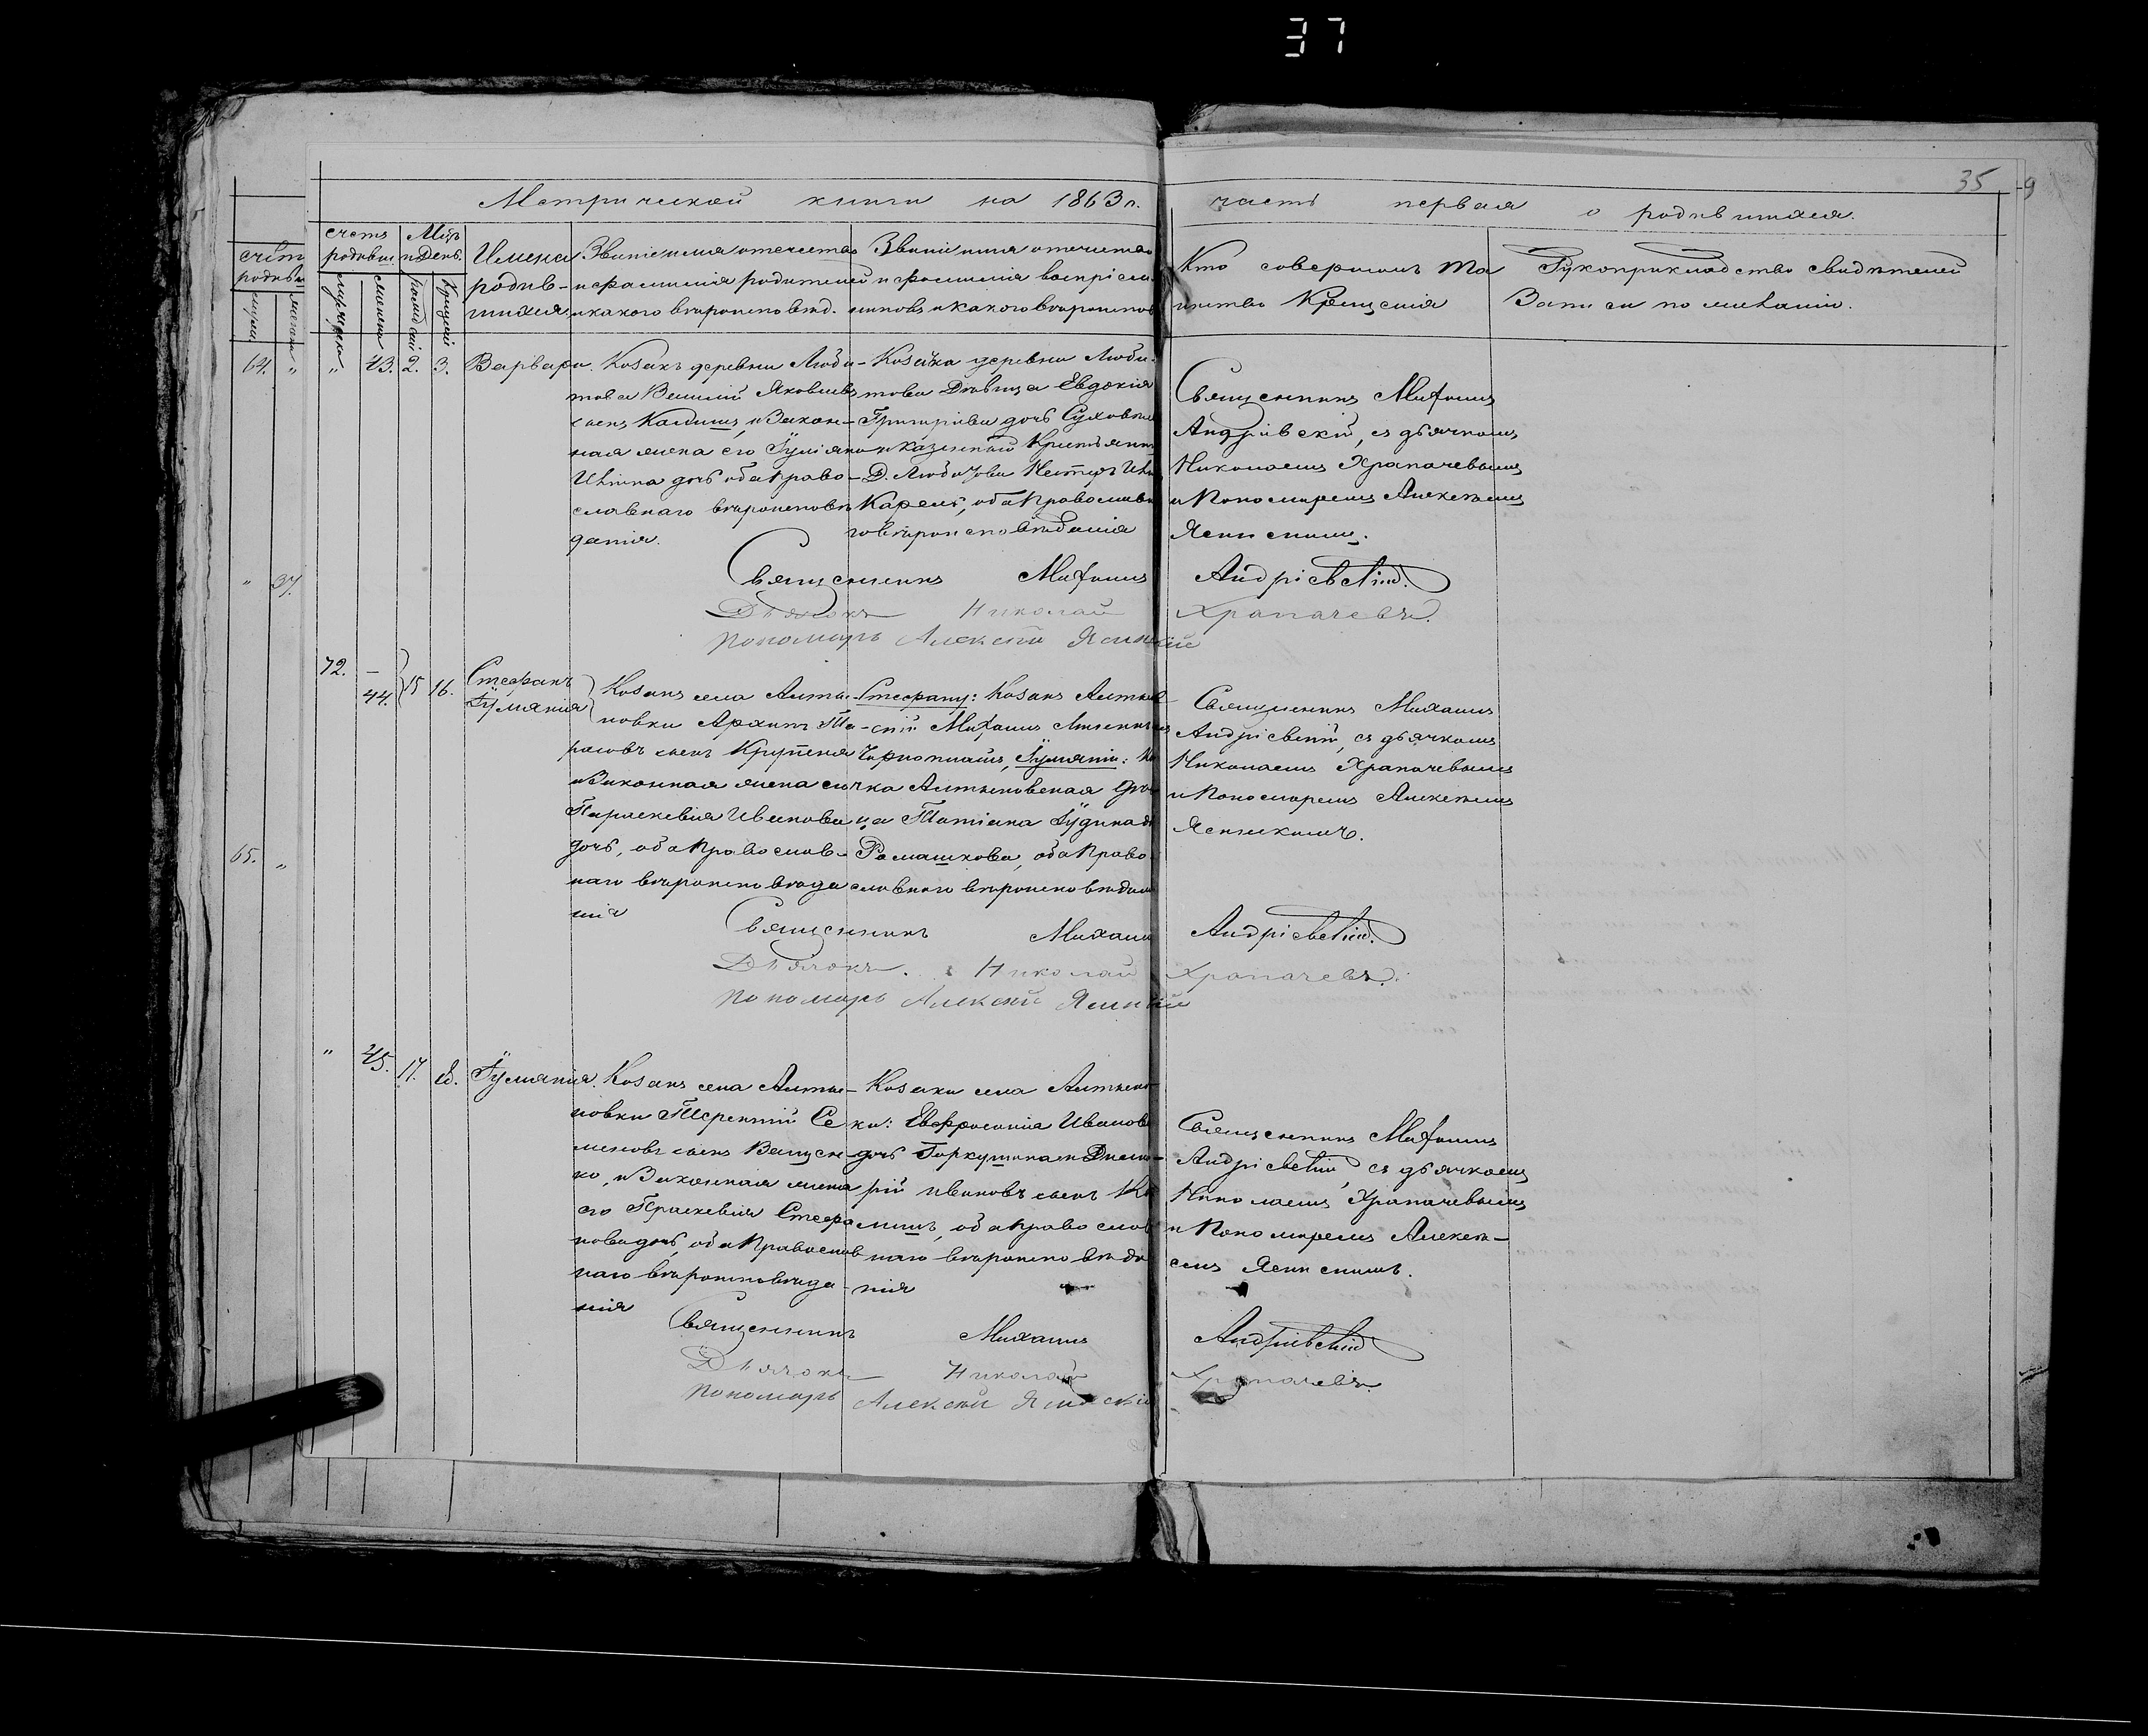 37
35
9
Метрической книги на 1863 г. часть первая о родившихся.
счетъ родивш
Мцъ и День.
Имена родив-
шихся.
Званіе имя отечество
и фамилія родителей
и какого вѣроисповѣд.
Званіе имя отечество
и фамилія воспріем-
никовъ и какого вѣроисповѣ
Кто совершалъ Та
инство Крещенія
Рукоприкладство свидѣтелей
Записи по желанію.
64. "
" 37.
65. "
" 43. 2. 3. Варвара.
Козакъ деревни Люби-
това Василій Яковлевъ
сынъ Калишъ, и Закон-
ная жена его Іуліянія
дочь оба право-
славнаго вѣроисповѣ
данія.
Козачка деревни Люби-
това Дѣвица Евдокія
Григоріева дочь
и Казенный Крестьянин
Д. Любитова Несторъ
Карель, оба Православ
го вѣроисповѣданія
Священникъ Михаилъ
Андріевскій, съ дьячкомъ
Николаемъ Храпачевымъ
и Пономаремъ Алексѣемъ
Ясинскимъ.
Священникъ Михаилъ Андріевскій.
Дьячокъ Николай Храпачевъ.
Пономарь Алексѣй Ясинскій
72. — 44. 15 16. Стефанъ
Іуліянія
Козакъ села Алты-
новки Архипъ Та-
расовъ сынъ Крупеня
и Законная жена его
Параскевія Иванова
дочь, оба Православ-
наго вѣроисповѣда
нія
Стефану: Козакъ Алтынов
скій Михаилъ
Чернописъ, Іуліяніи: Ко
чка Алтыновская
ца Татіана
Ромашкова, оба Право-
славнаго вѣроисповѣдан
Священникъ Михаилъ
Андріевскій, съ дьячкомъ
Николаемъ Храпачевымъ
и Пономаремъ Алексѣемъ
Ясинскимъ.
Священникъ Михаилъ Андріевскій.
Дьячокъ. Николай Храпачевъ.
Пономарь Алексѣй Ясинскій
" 45. 17. Іуліянія.
Козакъ села Алты-
новки Терентій Се
меновъ сынъ Ващен
ко, и Законная жена
его Параскевія Стефа
нова дочь, оба Православ
наго вѣроисповѣда-
нія
Козаки села Алтынов-
ки: Евфросинія Иванова
дочь и Дими-
рій Ивановъ сынъ
оба православ
наго вѣроисповѣда
нія
Священникъ Михаилъ
Андріевскій, съ дьячкомъ
Николаемъ Храпачевымъ
и Пономаремъ Алексѣ-
емъ Ясинскимъ.
Священникъ Михаилъ Андріевскій
Дьячокъ Николай Храпачевъ.
Пономарь Алексѣй Ясинскій